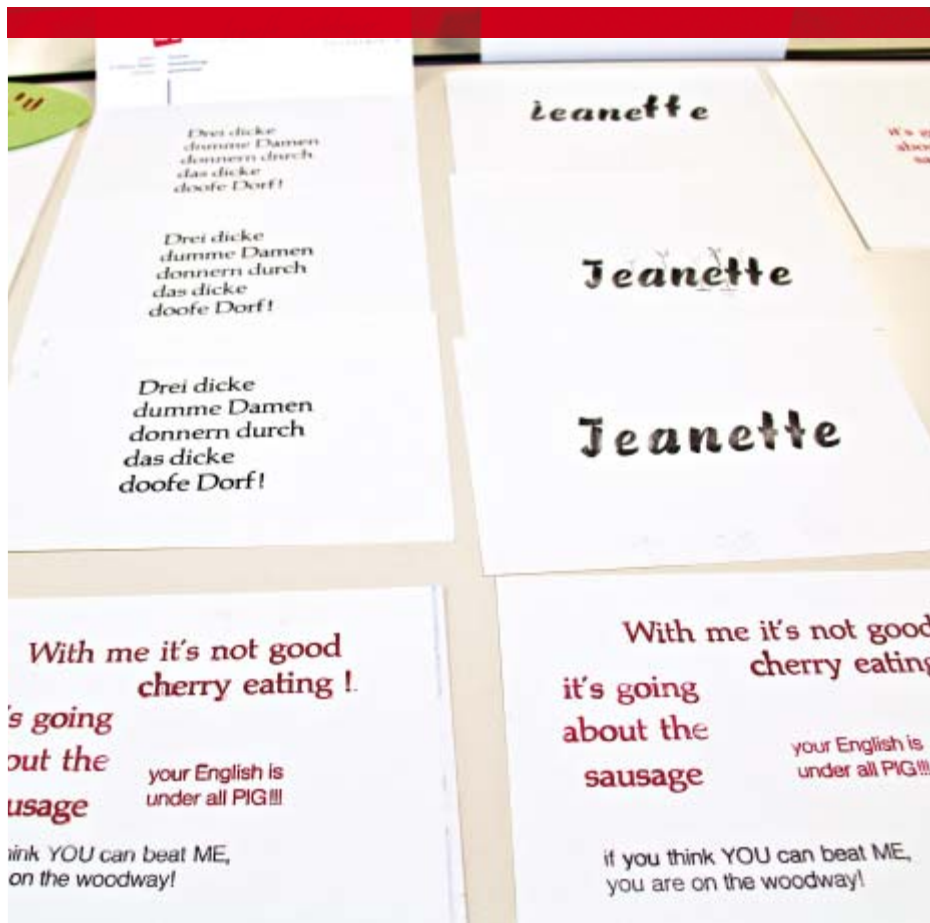 Drei dicke
dumme Damen
donnern durch
das dicke
doofe Dorf!
Drei dicke
dumme Damen
donnern durch
das dicke
doofe Dorf!
Drei dicke
dumme Damen
donnern durch
das dicke
doofe Dorf!
Jeanette
Jeanette
Jeanette
it's
With me it's not good
cherry eating !
's going
the
your English is
under all PIG!!!
YOU can beat ME,
on the woodway!
With me it's not good
cherry eating
it's going
about the
sausage
your English is
under all PIG!!!
if you think YOU can beat ME,
you are on the woodway!